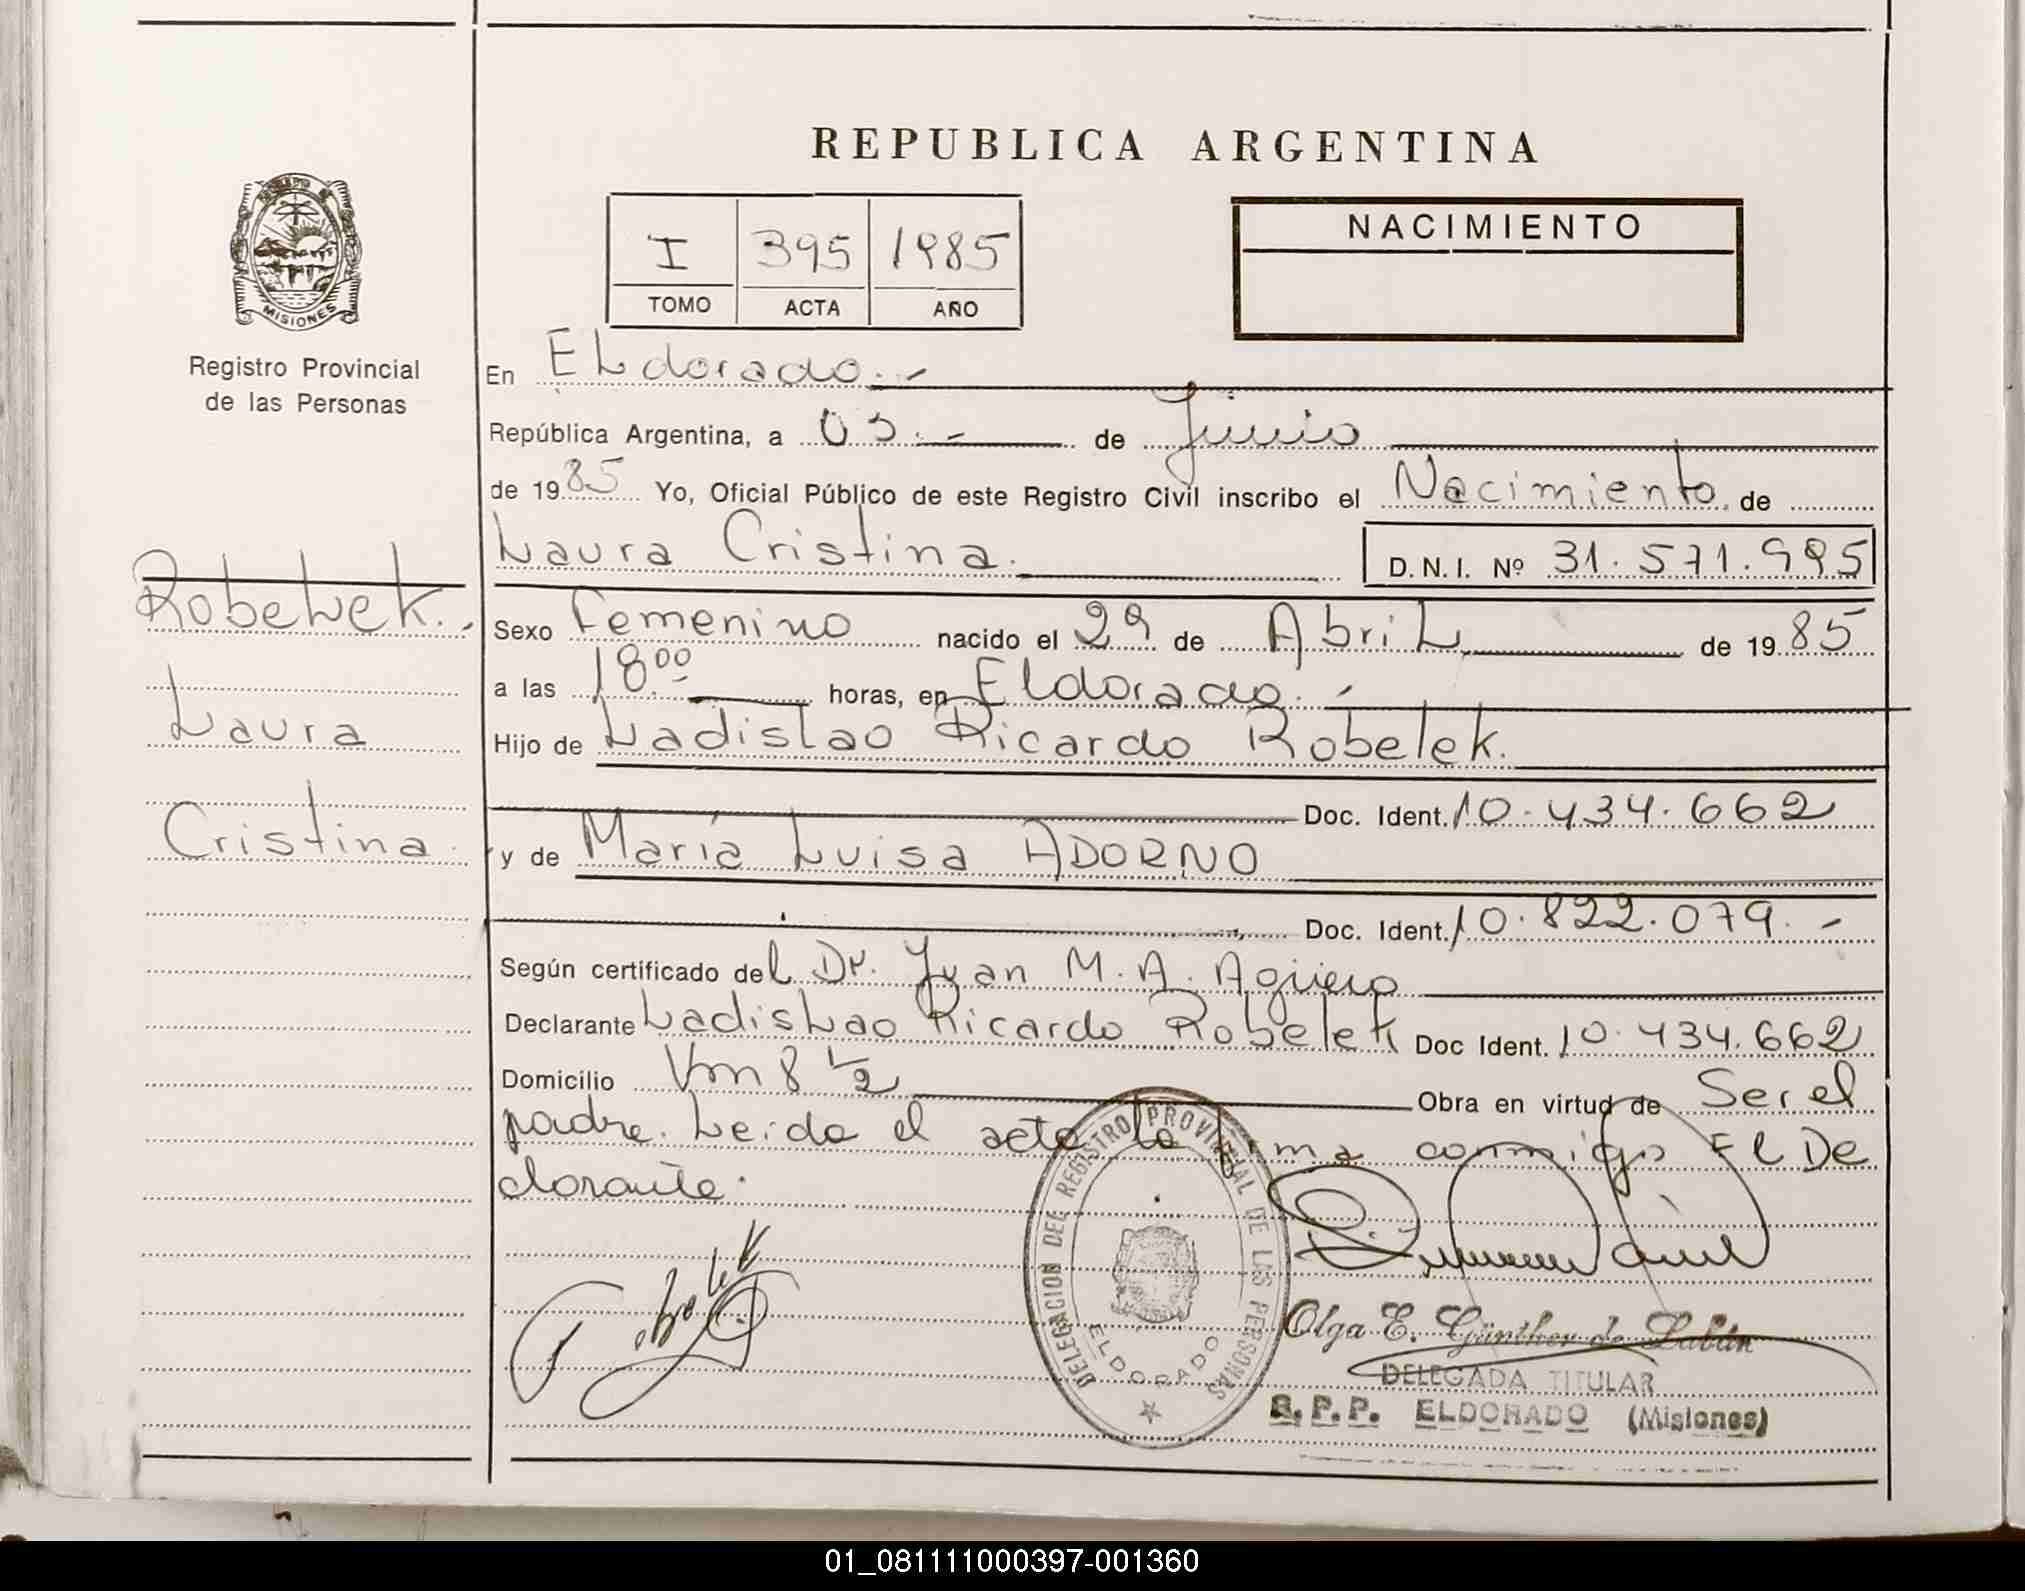 REPUBLICA ARGENTINA
I 395 1985
TOMO ACTA AÑO
NACIMIENTO
MISIONES
Registro Provincial
de las Personas
En ELdorado.-
República Argentina, a 03.- de Junio
de 1985 Yo, Oficial Público de este Registro Civil inscribo el Nacimiento de
Laura Cristina. D.N.I. Nº 31.571.995
Robelek.
Laura
Cristina.
Sexo Femenino nacido el 29 de AbriL de 1985
a las 18.00 horas, en Eldorado.-
Hijo de Ladislao Ricardo Robelek.
Doc. Ident. 10.434.662
y de María Luisa ADORNO
Doc. Ident. 10.822.079.-
Según certificado del Dr. Juan M. A. Agüero
Declarante Ladislao Ricardo Robelek Doc Ident. 10.434.662
Domicilio Km 8 1/2 Obra en virtud de Ser el
padre. Leida el acta la firma conmigo El De
clarante.
DELEGACION DEL REGISTRO PROVINCIAL DE LAS PERSONAS
ELDORADO
Olga E. Günther de Labán
DELEGADA TITULAR
R.P.P. ELDORADO (Misiones)
01_081111000397-001360